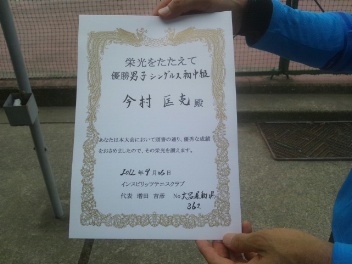 栄光をたたえて
優勝男子シングルス初中級
今村 匡克 殿
あなたは本大会において頭書の通り、優秀な成績
をおさめましたので、その栄光を讃えます。
インスピリッツテニスクラブ
代表 増田 吉彦
No.
362